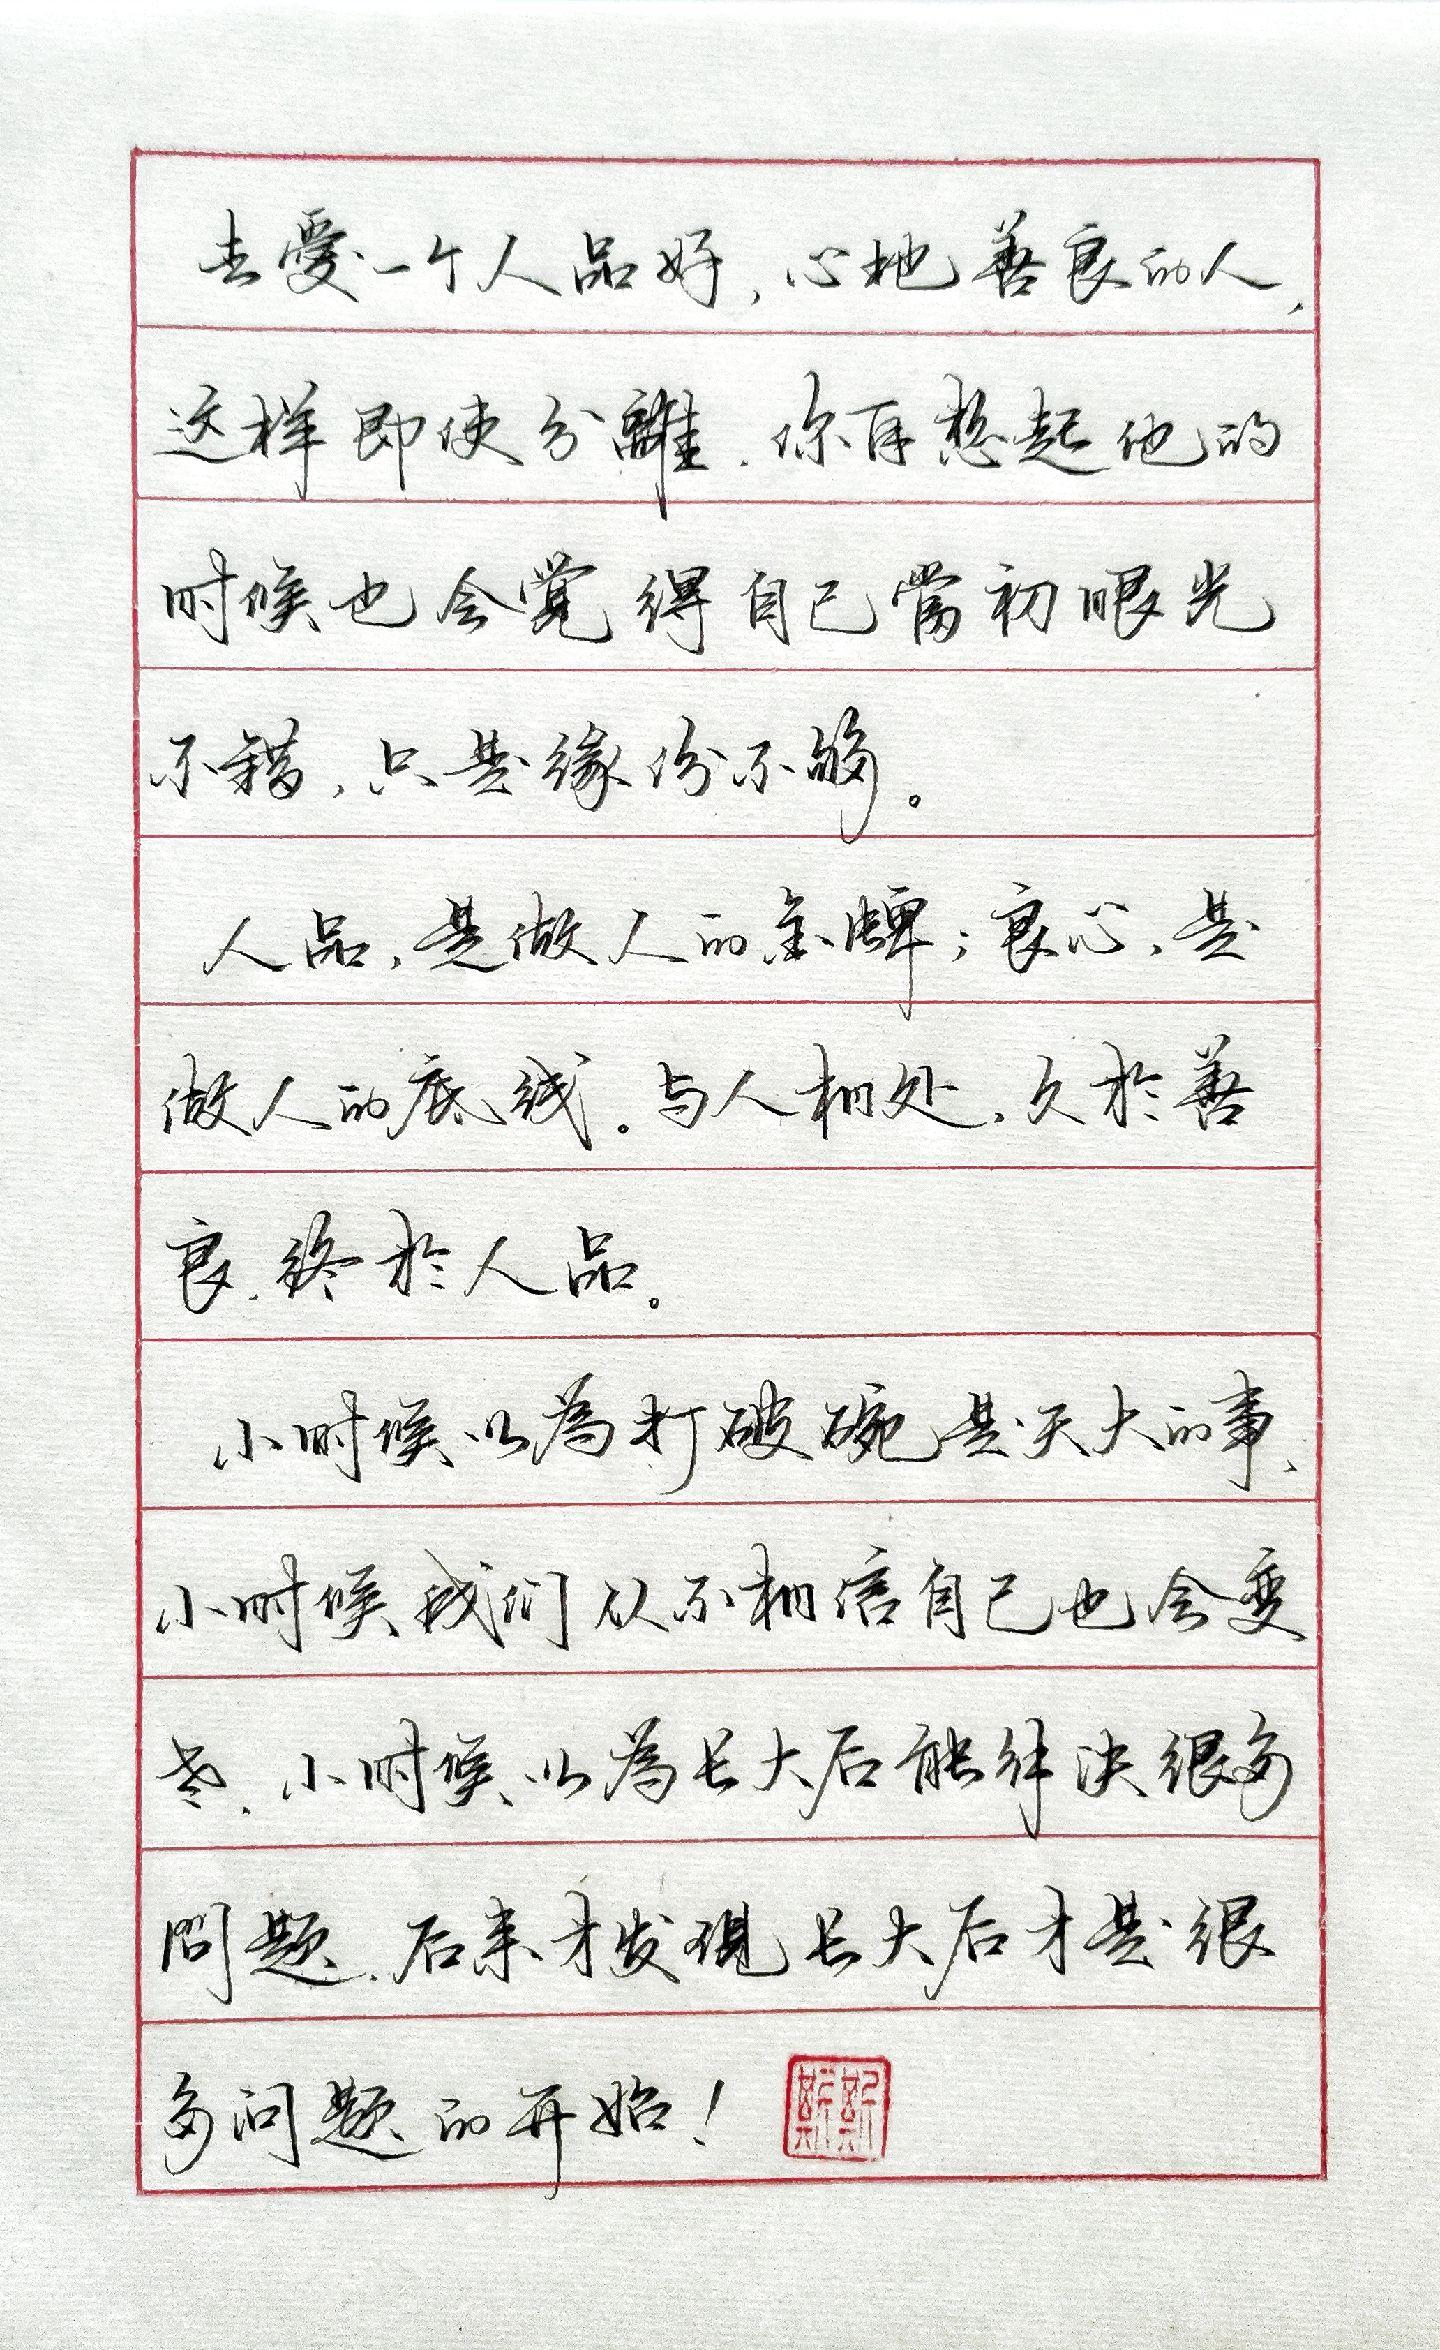 去愛一个人品好,心地善良的人,
这样即使分離,你再想起他的
时候也会覺得自己當初眼光
不错,只是缘份不够。
人品,是做人的金牌;良心,是
做人的底线。与人相处,久於善
良,终於人品。
小时候以為打破碗是天大的事,
小时候我们从不相信自己也会变
老,小时候以為长大后能解决很多
問题,后来才发现长大后才是很
多问题的开始!
斯斯